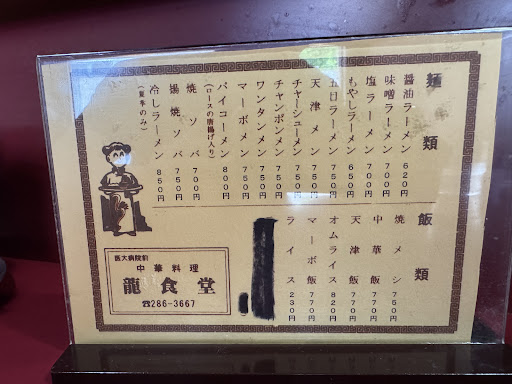 麺類
醤油ラーメン 620円
味噌ラーメン 700円
塩ラーメン 700円
もやしラーメン 650円
五目ラーメン 750円
天津メン 750円
チャーシューメン 750円
チャンポンメン 750円
ワンタンメン 750円
マーボメン 750円
パイコーメン 800円
(ロースの唐揚げ入り)
焼ソバ 700円
揚焼ソバ 750円
冷しラーメン 850円
(夏季のみ)
飯類
焼メシ 750円
中華飯 770円
天津飯 770円
オムライス 820円
マーボ飯 770円
ライス 230円
医大病院前
中華料理
龍食堂
☎286-3667